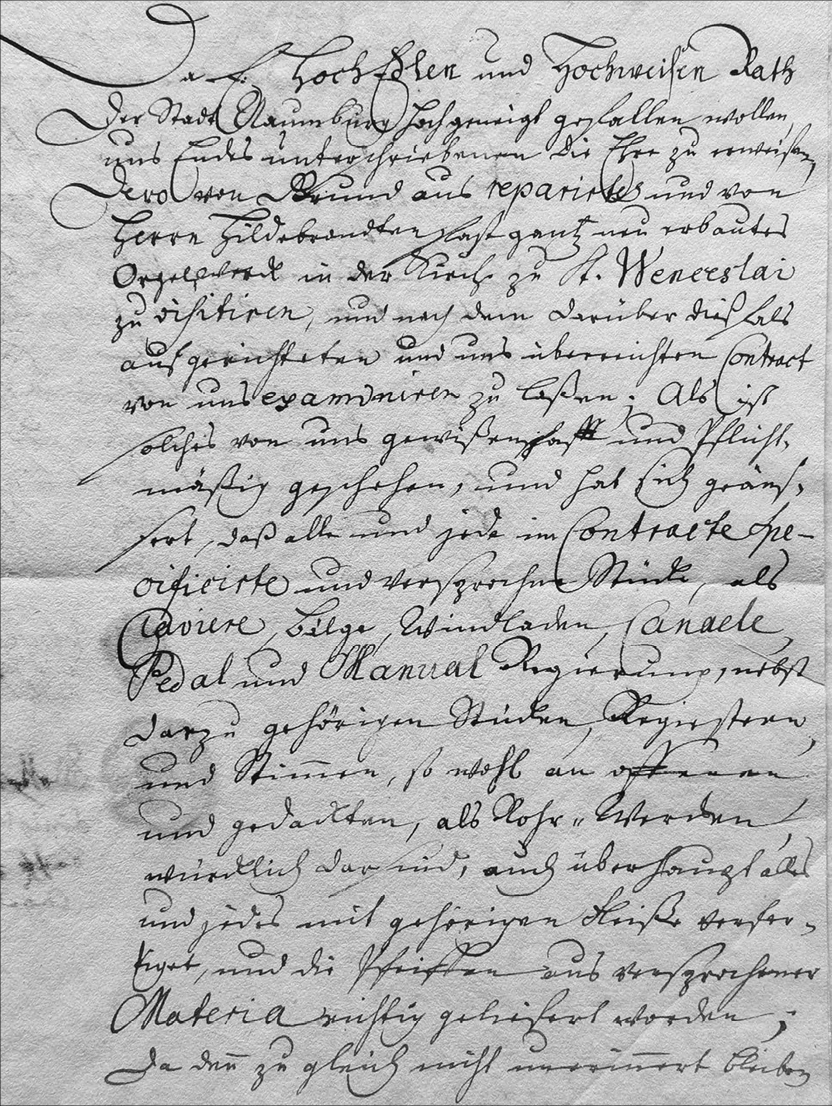 Da E. HochEdlen und Hochweisen Rath
Der Stadt Naumburg hochgeneigt gefallen wollen,
uns Endes unterschriebenen die Ehre zu erweisen,
Dero von Grund aus reparirtes und von
Herrn Hildebrandten fast gantz neu erbautes
Orgelwerck in der Kirche zu St. Wenceslai
zu visitiren, und nach dem darüber dießfals
aufgerichteten und uns überreichten Contract
von uns examiniren zu laßen; Als ist
solches von uns gewißenhafft und Pflicht-
mäßig geschehen, und hat sich geäuß-
sert, daß alle und jede im Contracte spe-
cificirte und versprochne Stücke, als
Claviere, Bälge, Windladen, Canaele,
Pedal und Manual Regierung, nebst
darzu gehörigen Stücken, Registern,
und Stimmen, so wohl an offenen
und gedackten, als Rohr-Wercken
würcklich dar sind, auch überhaupt alles
und jedes mit gehörigen Fleiße verfer-
tiget, und die Pfeiffen aus versprochener
Materia richtig geliefert worden;
Da denn zu gleich nicht unerinnert bleiben